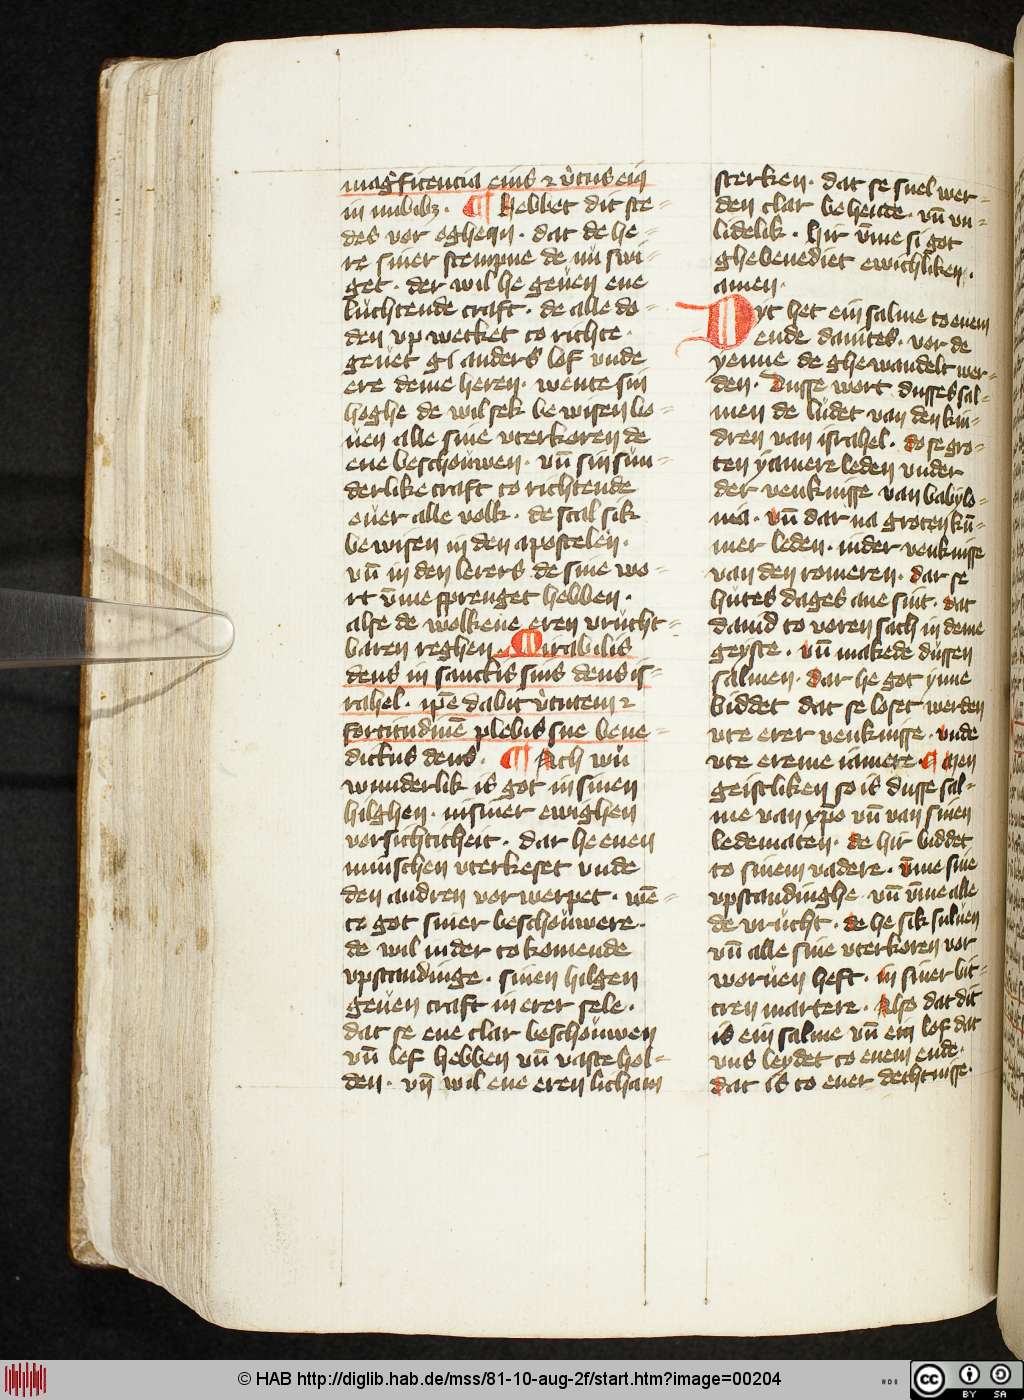 magͥficencia eius ⁊ v̾tus eiꝯ
in nubibꝫ · ¶ Hebbet dit ste-
des vor oghen · dat de he-
re siner stempne de nu swi-
get · der wil he geuen ene
luchtende craft · de alle do-
den vp wecket to richte ·
geuet gi anders lof vnde
ere deme heren · wente sin
hoghe de wil sek bewisen bo-
uen alle sine vterkoren de
ene beschouwen · vn̄ sin sun-
derlike craft to richtende
ouer alle volk · de scal sik
bewisen in den apostelen ·
vn̄ in den lerers de sine wo-
rt vm̄e sprenget hebben ·
alse de wolkene eren vrucht-
baren reghen · Mirabilis
deus in sanctis suis deus is-
rahel · ip̄e dabit v̾tutem ⁊
fortitudinē plebis sue bene-
dictus deus · ¶ Ach wu
wunderlik is got in sinen
hilghen · in siner ewighen
vorsichticheit · dar he enen
minschen vterkeset vnde
den andren vorwerpet · wē-
te got siner beschouwere ·
de wil in der tokomende
vpstandinge · sinen hilgen
geuen craft in erer sele ·
dat se ene clar beschouwen
vn̄ lef hebben vn̄ vaste hol-
den · vn̄ wil ene eren licham
sterken · dat se snel wer-
den clar behente · vn̄ vn-
lidelik · hir vm̄e si got
ghebenediet ewichliken ·
amen ·
Dyt het ein salme to enem
ende dauites · vor de
yenne de ghewandelt wer-
den · Dusse wort dusses sal-
men de ludet van den kin-
dren van israhel · do se gro-
ten yamere leden vnder
der venknisse van babylo-
nia · vn̄ dar na groten kū-
mer leden · in der venknisse
van den romeren · dar se
hutes dages ane sint · dat
dauid to voren sach in deme
geyste · vn̄ makede dussen
salmen · dar he got ynne
biddet dat se loset werden
vte erer venknisse · vnde
vte ereme iamere ¶ Men
geistliken so is dusse sal-
me van xp̄o vn̄ van sinen
ledematen · de hir biddet
to sinem vadere · vm̄e sine
vpstandinghe vn̄ vm̄e alle
de vrucht · de he sik suluen
vn̄ alle sine vterkoren vor
woruen heft · in siner bit-
tren martere · Also dat dit
is ein salme vn̄ ein lof dat
vns leydet to enem ende ·
dat is to ener dechtnisse ·
© HAB http://diglib.hab.de/mss/81-10-aug-2f/start.htm?image=00204
HAB
cc BY SA